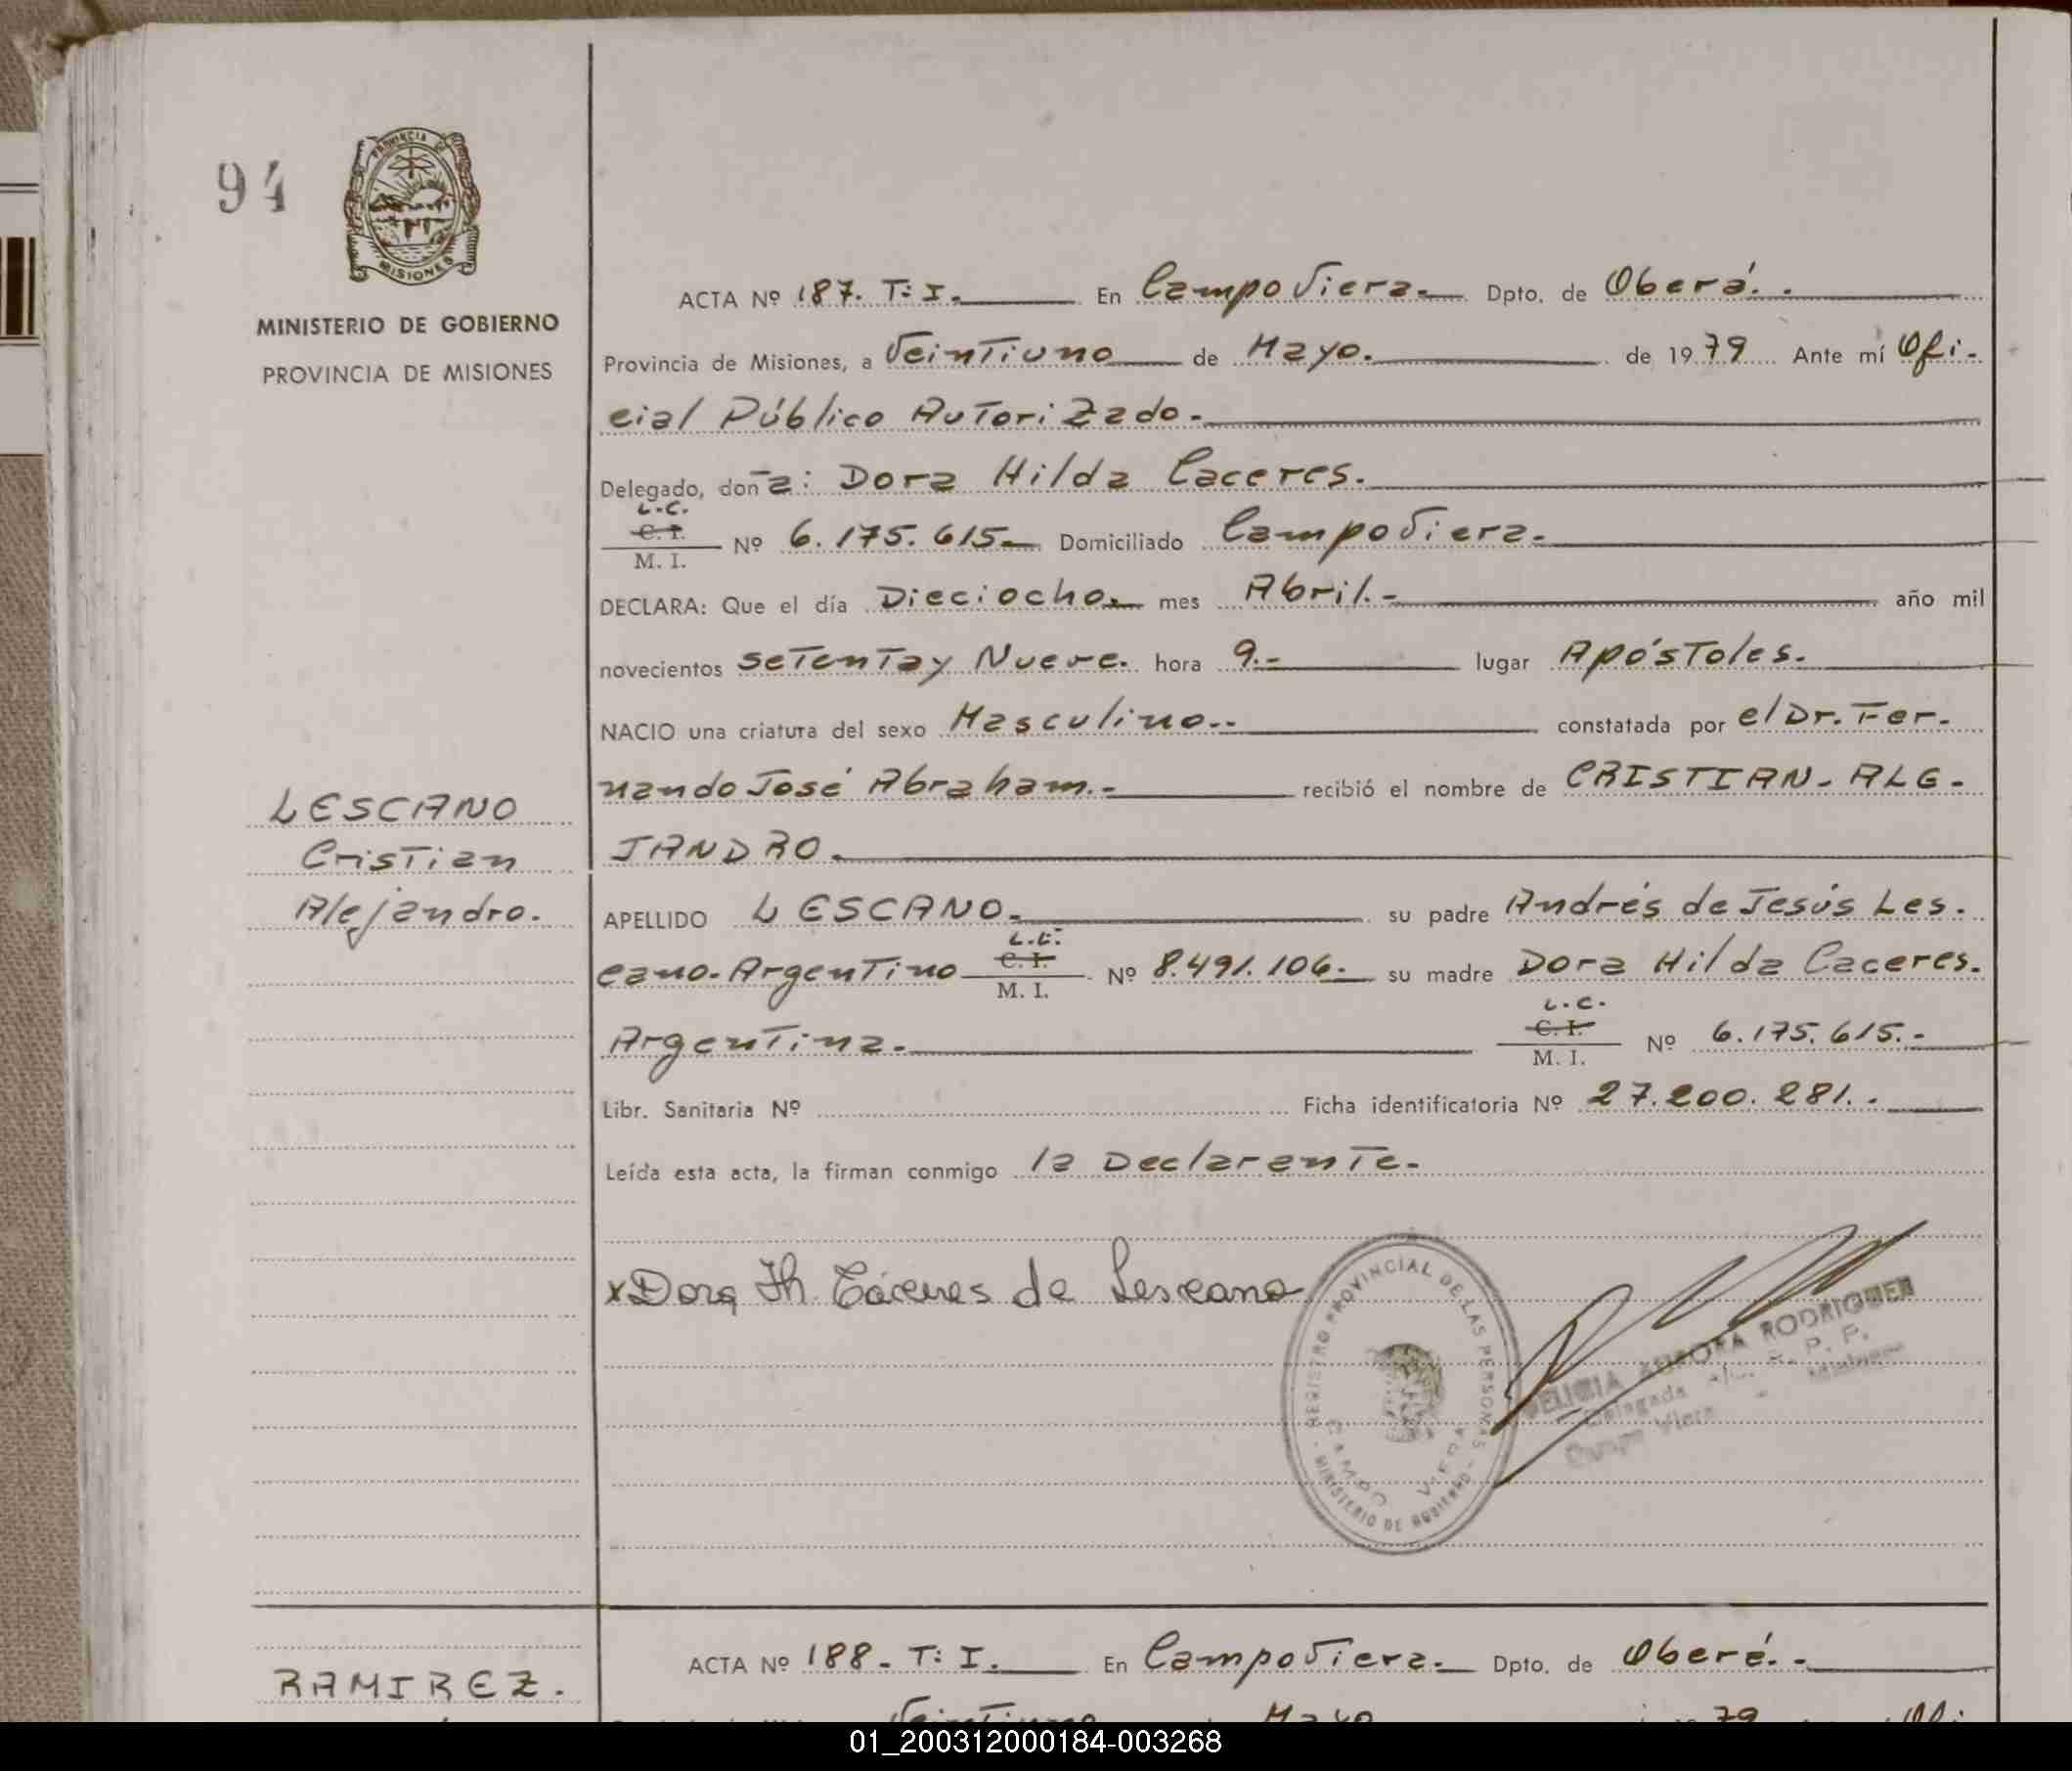 94
PROVINCIA DE
MISIONES
MINISTERIO DE GOBIERNO
PROVINCIA DE MISIONES
LESCANO
Cristian
Alejandro.
ACTA Nº 187. T: I. En Campo Viera. Dpto. de Oberá.
Provincia de Misiones, a Veintiuno de Mayo. de 1979 Ante mí Ofi-
cial Público Autorizado.
Delegado, doña: Dora Hilda Caceres.
L.C.
C. I.
M. I. Nº 6.175.615 Domiciliado Campo Viera.
DECLARA: Que el día Dieciocho mes Abril. año mil
novecientos setenta y Nueve. hora 9.- lugar Apóstoles.
NACIO una criatura del sexo Masculino.. constatada por el Dr. Fer-
nando José Abraham.- recibió el nombre de CRISTIAN-ALE-
JANDRO.
APELLIDO LESCANO. su padre Andrés de Jesús Les-
cano. Argentino L.E. C. I. M. I. Nº 8.491.106. su madre Dora Hilda Caceres.
Argentina. L.C. C. I. M. I. Nº 6.175.615.-
Libr. Sanitaria Nº Ficha identificatoria Nº 27.200.281..
Leída esta acta, la firman conmigo la Declarante.
x Dora H. Cáceres de Lescano
REGISTRO PROVINCIAL DE LAS PERSONAS
MINISTERIO DE GOBIERNO
CAMPO VIERA
DELICIA AURORA RODRIGUEZ
Delegada R. P. P.
Campo Viera - Misiones
RAMIREZ.
ACTA Nº 188. T: I. En Campo Viera. Dpto. de Oberá.
Veintiuno Mayo 79 Ofi
01_200312000184-003268